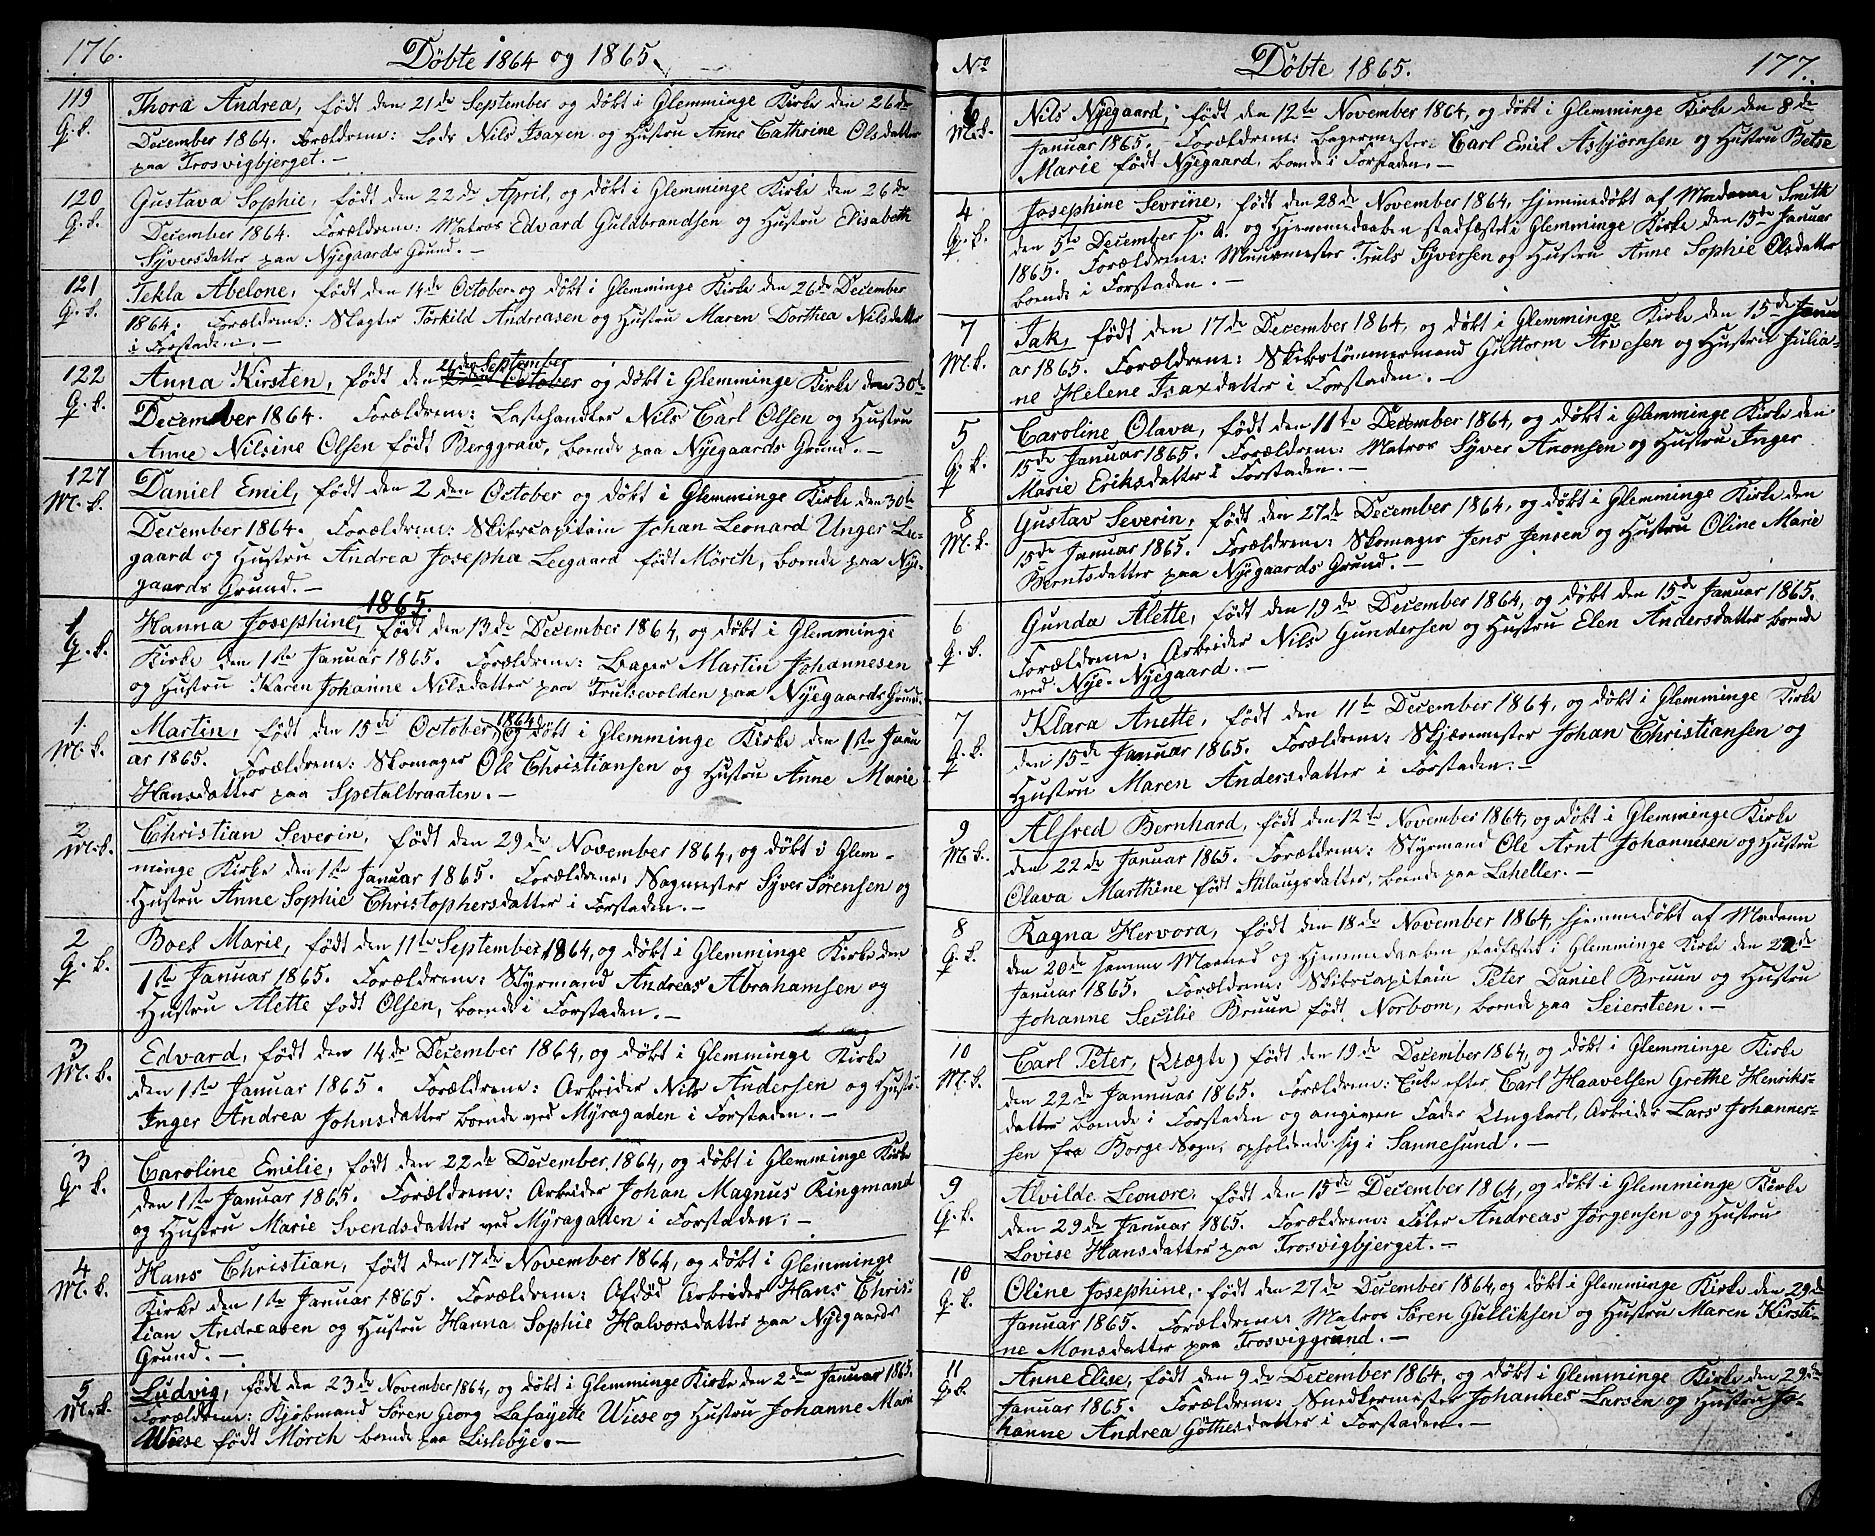 176.
Döbte 1864 og 1865.
119
Thora Andrea, født den 21de September og døbt i Glemminge Kirke den 26de
Q. k.
December 1864. Forældrene: Lods Nils Isaxen og Hustru Anne Cathrine Olsdatter
paa Trosvigbjerget. —
120
Gustava Sophie, født den 22de April, og døbt i Glemminge Kirke den 26de
Q. k.
December 1864. Forældrene: Matros Edvard Guldbrandsen og Hustru Elisabeth
Syversdatter paa Nyegaards Grund. —
121
Tekla Abelone, født den 14de October og døbt i Glemminge Kirke den 26de December
Q. k.
1864. Forældrene: Slagter Törkild Andreasen og Hustru Maren Dorthea Nilsdatter
i Forstaden. —
21de September
122
Anna Kirsten, født den October og døbt i Glemminge Kirke den 30te
Q. k.
December 1864. Forældrene: Lastehandler Nils Carl Olsen og Hustru
Anne Nilsine Olsen født Berggraw, boende paa Nyegaards Grund. —
127
Daniel Emil, født den 2den October og døbt i Glemminge Kirke den 30te
M. k.
December 1864. Forældrene: Skibscapitain Johan Leonard Unger Lee-
gaard og Hustru Andrea Josepha Leegaard født Mörch, boende paa Nye-
gaards Grund. —
1865.
1
Hanna Josephine, født den 13de December 1864, og døbt i Glemminge
Q. k.
Kirke den 1ste Januar 1865. Forældrene: Bager Martin Johannesen
og Hustru Karen Johanne Nilsdatter paa Trulsevolden paa Nyegaards Grund.
1.
Martin, født den 15de October, 1864 og døbt i Glemminge Kirke den 1ste Janu
M. k.
ar 1865. Forældrene: Skomager Ole Christiansen og Hustru Anne Marie
Hansdatter paa Spetalbraaten. —
2
Christian Severin, født den 29de November 1864, og døbt i Glem-
M. k.
minge Kirke den 1ste Januar 1865. Forældrene: Sagmester Syver Sørensen og
Hustru Anne Sophie Christophersdatter i Forstaden. —
2
Boel Marie, født den 11te September 1864, og døbt i Glemminge Kirke den
Q. k.
1ste Januar 1865. Forældrene: Styrmand Andreas Abrahamsen og
Hustru Alette født Olsen, boende i Forstaden. —
3
Edvard, født den 14de December 1864, og døbt i Glemminge Kirke
M. k.
den 1ste Januar 1865. Forældrene: Arbeider Nils Andersen og Hustru
Inger Andrea Johnsdatter boende ved Myragaden i Forstaden. —
3
Caroline Emilie, født den 22de December, 1864, og døbt i Glemminge Kirke
Q. k.
den 1ste Januar 1865. Forældrene: Arbeider Johan Magnus Ringmand
og Hustru Marie Svendsdatter ved Myragaden i Forstaden. —
4
Hans Christian, født den 17de November 1864, og døbt i Glemminge
M. k.
Kirke den 1ste Januar 1865. Forældrene: Afdöd Arbeider Hans Chris-
tian Andreasen og Hustru Hanna Sophie Halvorsdatter paa Nyegaards
Grund. —
5
Ludvig, født den 23de November 1864, og døbt i Glemminge Kirke den 2den Januar 1865.
M. k.
Forældrene: Kjøbmand Søren Georg Lafayette Wiese og Hustru Johanne Marie
Wiese født Mörch boende paa Lislebye. —
No
Döbte 1865.
177.
6
Nils Nyegaard, født den 12te November 1864, og døbt i Glemminge Kirke den 8de
M. k.
Januar 1865. Forældrene: Bagermester Carl Emil Asbjørnsen og Hustru Betse
Marie født Nyegaard, boende i Forstaden. —
4
Josephine Sevrine, født den 28de November 1864, hjemmedøbt af Madame Smith
Q. k.
den 5te December s. A. og Hjemmedaaben stadfæstet i Glemminge Kirke den 15de Januar
1865. Forældrene: Muurmester Truls Syversen og Hustru Anne Sophie Olsdatter
boende i Forstaden. —
7
Jak, født den 17de December 1864, og døbt i Glemminge Kirke den 15de Janu
M. k.
ar 1865. Forældrene: Skibstömmermand Guttorm Arvesen og Hustru Julia-
ne Helene Isaxdatter i Forstaden. —
5
Caroline Olava, født den 11te December 1864, og døbt i Glemminge Kirke den
Q. k.
15de Januar 1865. Forældrene: Matros Syver Aronsen og Hustru Inger
Marie Eriksdatter i Forstaden. —
8
Gustav Severin, født den 27de December 1864, og døbt i Glemminge Kirke den
M. k.
15de Januar 1865. Forældrene: Skomager Jens Jensen og Hustru Oline Marie
Berntsdatter paa Nyegaards Grund. —
6
Gunda Alette, født den 19de December 1864, og døbt den 15de Januar 1865.
Q. k.
Forældrene: Arbeider Nils Gundersen og Hustru Elen Andersdatter boende
ved Nye-Nyegaard. —
7
Klara Anette, født den 11te December 1864, og døbt i Glemminge Kirke
Q. k.
den 15de Januar 1865. Forældrene: Skjæremester Johan Christiansen og
Hustru Maren Andersdatter i Forstaden. —
9
Alfred Bernhard, født den 12te November 1864, og døbt i Glemminge Kirke
M. k.
den 22de Januar 1865. Forældrene: Styrmand Ole Arnt Johannesen og Hustru
Olava Marthine født Stilaugsdatter, boende paa Laheller. —
8
Ragna Hervora, født den 18de November 1864, hjemmedøbt af Madam
Q. k.
den 20de samme Maaned og Hjemmedaaben stadfæstet i Glemminge Kirke den 22de
Januar 1865. Forældrene: Skibscapitain Peter Daniel Bruun og Hustru
Johanne Secilie Bruun født Norbom, boende paa Seiersteen. —
10
Carl Peter, (Uægte) født den 19de December 1864, og døbt i Glemminge Kirke
M. k.
den 22de Januar 1865. Forældrene: Enke efter Carl Haavelsen Grethe Henriks-
datter boende i Forstaden og angiven Fader Ungkarl, Arbeider Lars Johannes-
sen fra Borge Sogn, opholdende sig i Sannesund. —
9
Alvilde Leonore, født den 15de December 1864, og døbt i Glemminge Kirke
Q. k.
den 29de Januar 1865. Forældrene: Feier Andreas Jørgensen og Hustru
Lovise Hansdatter paa Trosvigbjerget. —
10
Oline Josephine, født den 27de December 1864, og døbt i Glemminge Kirke den 29de
Q. k.
Januar 1865. Forældrene: Matros Søren Gulliksen og Hustru Maren Kirsti-
ne Monsdatter paa Trosviggrund. —
11
Anne Elise, født den 9de December 1864, og døbt i Glemminge Kirke den 29de
Q. k.
Januar 1865. Forældrene: Snedkermester Johannes Larsen og Hustru Jo-
hanne Andrea Göthesdatter i Forstaden. —